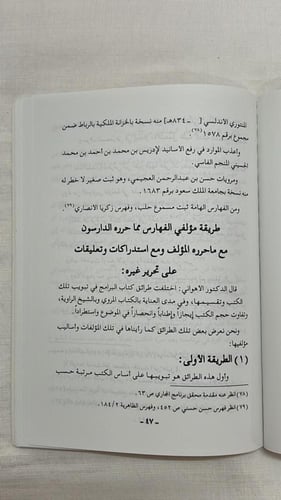 المنتوري الاندلسي [ ــ ٨٣٤هـ] منه نسخة بالخزانة الملكية بالرباط ضمن
مجموع برقم ١٥٧٨(٢٨).
واعذب الموارد في رفع الاسانيد لإدريس بن محمد بن احمد بن محمد
الحسيني المنجم الفاسي.
ومرويات حسن بن عبدالرحمن العجيمي، وهو ثبت صغير لا خطر له
منه نسخة بجامعة الملك سعود برقم ١٦٨٣.
ومن الفهارس الهامة ثبت مسموع حلب، وفهرس زكريا الانصاري(٢٩).
طريقة مؤلفي الفهارس مما حرره الدارسون
مع ماحرره المؤلف ومع استدراكات وتعليقات
على تحرير غيره:
قال الدكتور الاهواني: اختلفت طرائق كتاب البرامج في تبويب تلك
الكتب وتقسيمها، وفي مدى العناية بالكتاب المروي وبالشيخ الراوية،
وتفاوت حجم الكتب إيجازاً وإطناباً وانحصاراً في الموضوع واستطراداً.
ونحن نعرض بعض تلك الطرائق كما رأيناها في تلك المؤلفات واساليب
مؤلفيها:
(١) الطريقة الأولى:
وأول هذه الطرائق هو تبويبها على أساس الكتب مرتبة حسب
(٢٨) انظر عنه مقدمة محقق برنامج المجاري ص ٦٣.
(٢٩) انظر فهرس حسن حسني ص ٤٥٢، وفهرس الظاهرية ١٨٤/٢.
ـ ٤٧ ـ